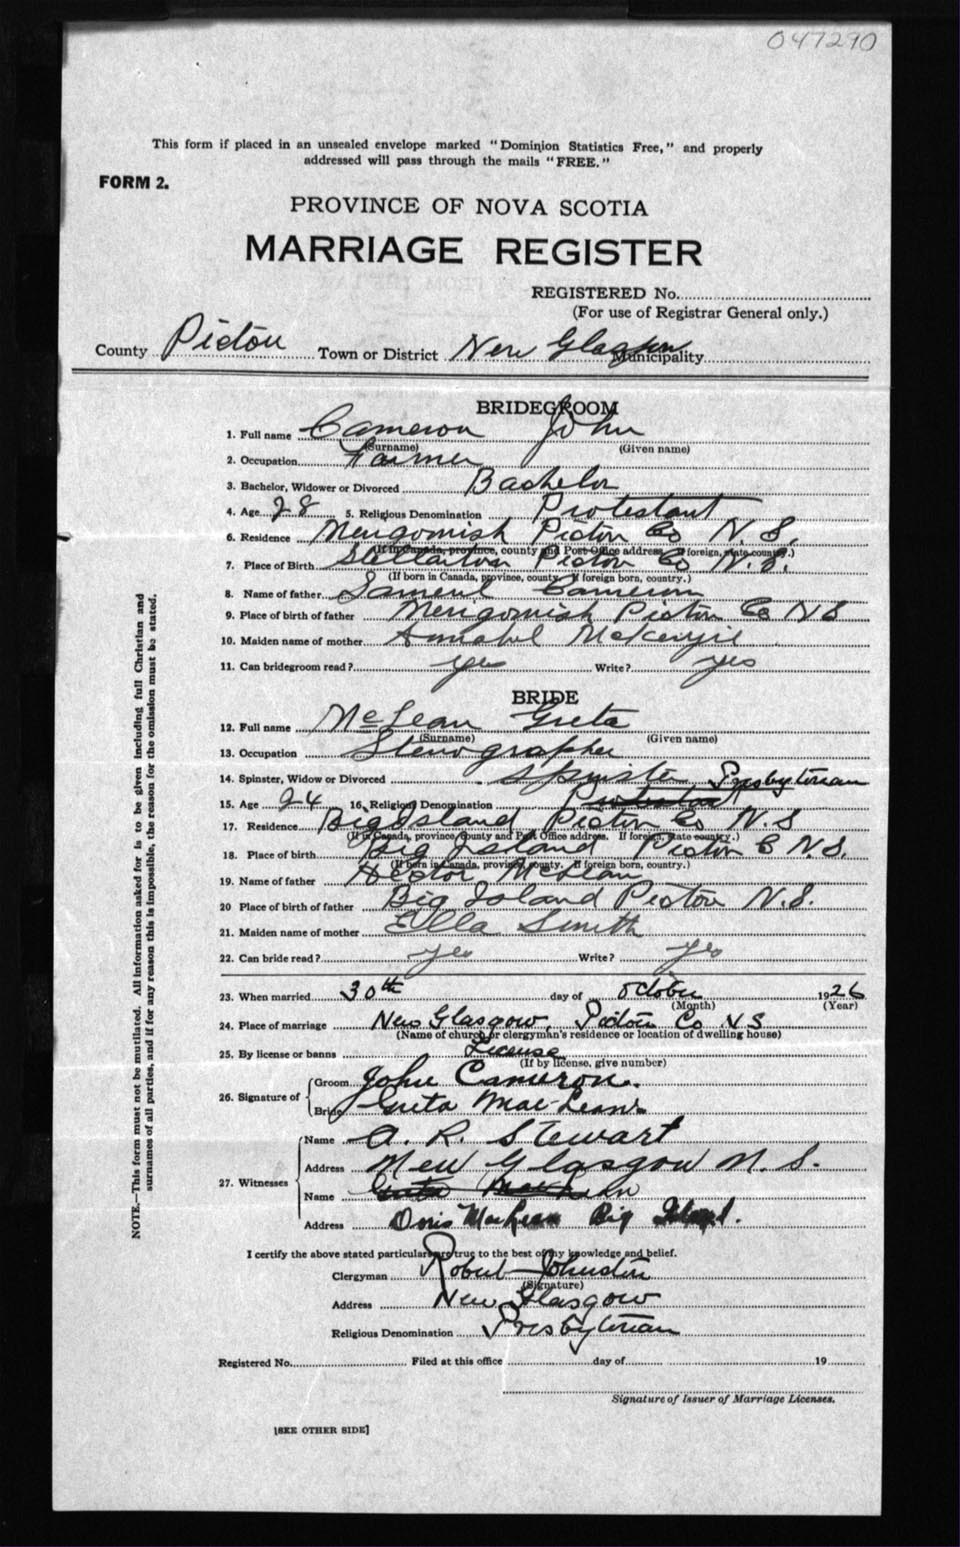 047290
This form if placed in an unsealed envelope marked "Dominion Statistics Free," and properly
addressed will pass through the mails "FREE."
FORM 2.
PROVINCE OF NOVA SCOTIA
MARRIAGE REGISTER
REGISTERED No.
(For use of Registrar General only.)
County Pictou Town or District New Glasgow Municipality
BRIDEGROOM
1. Full name Cameron John
(Surname) (Given name)
2. Occupation Farmer
3. Bachelor, Widower or Divorced Bachelor
4. Age 28 5. Religious Denomination Protestant
6. Residence Merigomish Pictou Co N.S.
(If in Canada, province, county and Post Office address. If foreign, state country.)
7. Place of Birth Stellarton Pictou Co N.S.
(If born in Canada, province, county. If foreign born, country.)
8. Name of father Samuel Cameron
9. Place of birth of father Merigomish Pictou Co N S
10. Maiden name of mother Annabel McKenzie
11. Can bridegroom read? yes Write? yes
BRIDE
12. Full name McLean Greta
(Surname) (Given name)
13. Occupation Stenographer
14. Spinster, Widow or Divorced Spinster Presbyterian
15. Age 24 16. Religious Denomination Protestant
17. Residence Big Island Pictou Co N.S
(If in Canada, province, county and Post Office address. If foreign, state country.)
18. Place of birth Big Island Pictou C N.S.
(If born in Canada, province, county. If foreign born, country.)
19. Name of father Hector McLean
20 Place of birth of father Big Island Pictou N.S.
21. Maiden name of mother Ella Smith
22. Can bride read? yes Write? yes
23. When married 30th day of October 1926
(Month) (Year)
24. Place of marriage New Glasgow, Pictou Co N S
(Name of church or clergyman's residence or location of dwelling house)
25. By license or banns License
(If by license, give number)
26. Signature of Groom John Cameron.
Bride Greta MacLean
27. Witnesses Name A. R. Stewart
Address New Glasgow N. S.
Name Greta MacLean
Address Doris MacLean Big Island.
I certify the above stated particulars are true to the best of my knowledge and belief.
Clergyman Robert Johnston
(Signature)
Address New Glasgow
Religious Denomination Presbyterian
Registered No. Filed at this office day of 19
Signature of Issuer of Marriage Licenses.
[SEE OTHER SIDE]
NOTE.—This form must not be mutilated. All information asked for is to be given including full Christian and
surnames of all parties, and if for any reason this is impossible, the reason for the omission must be stated.